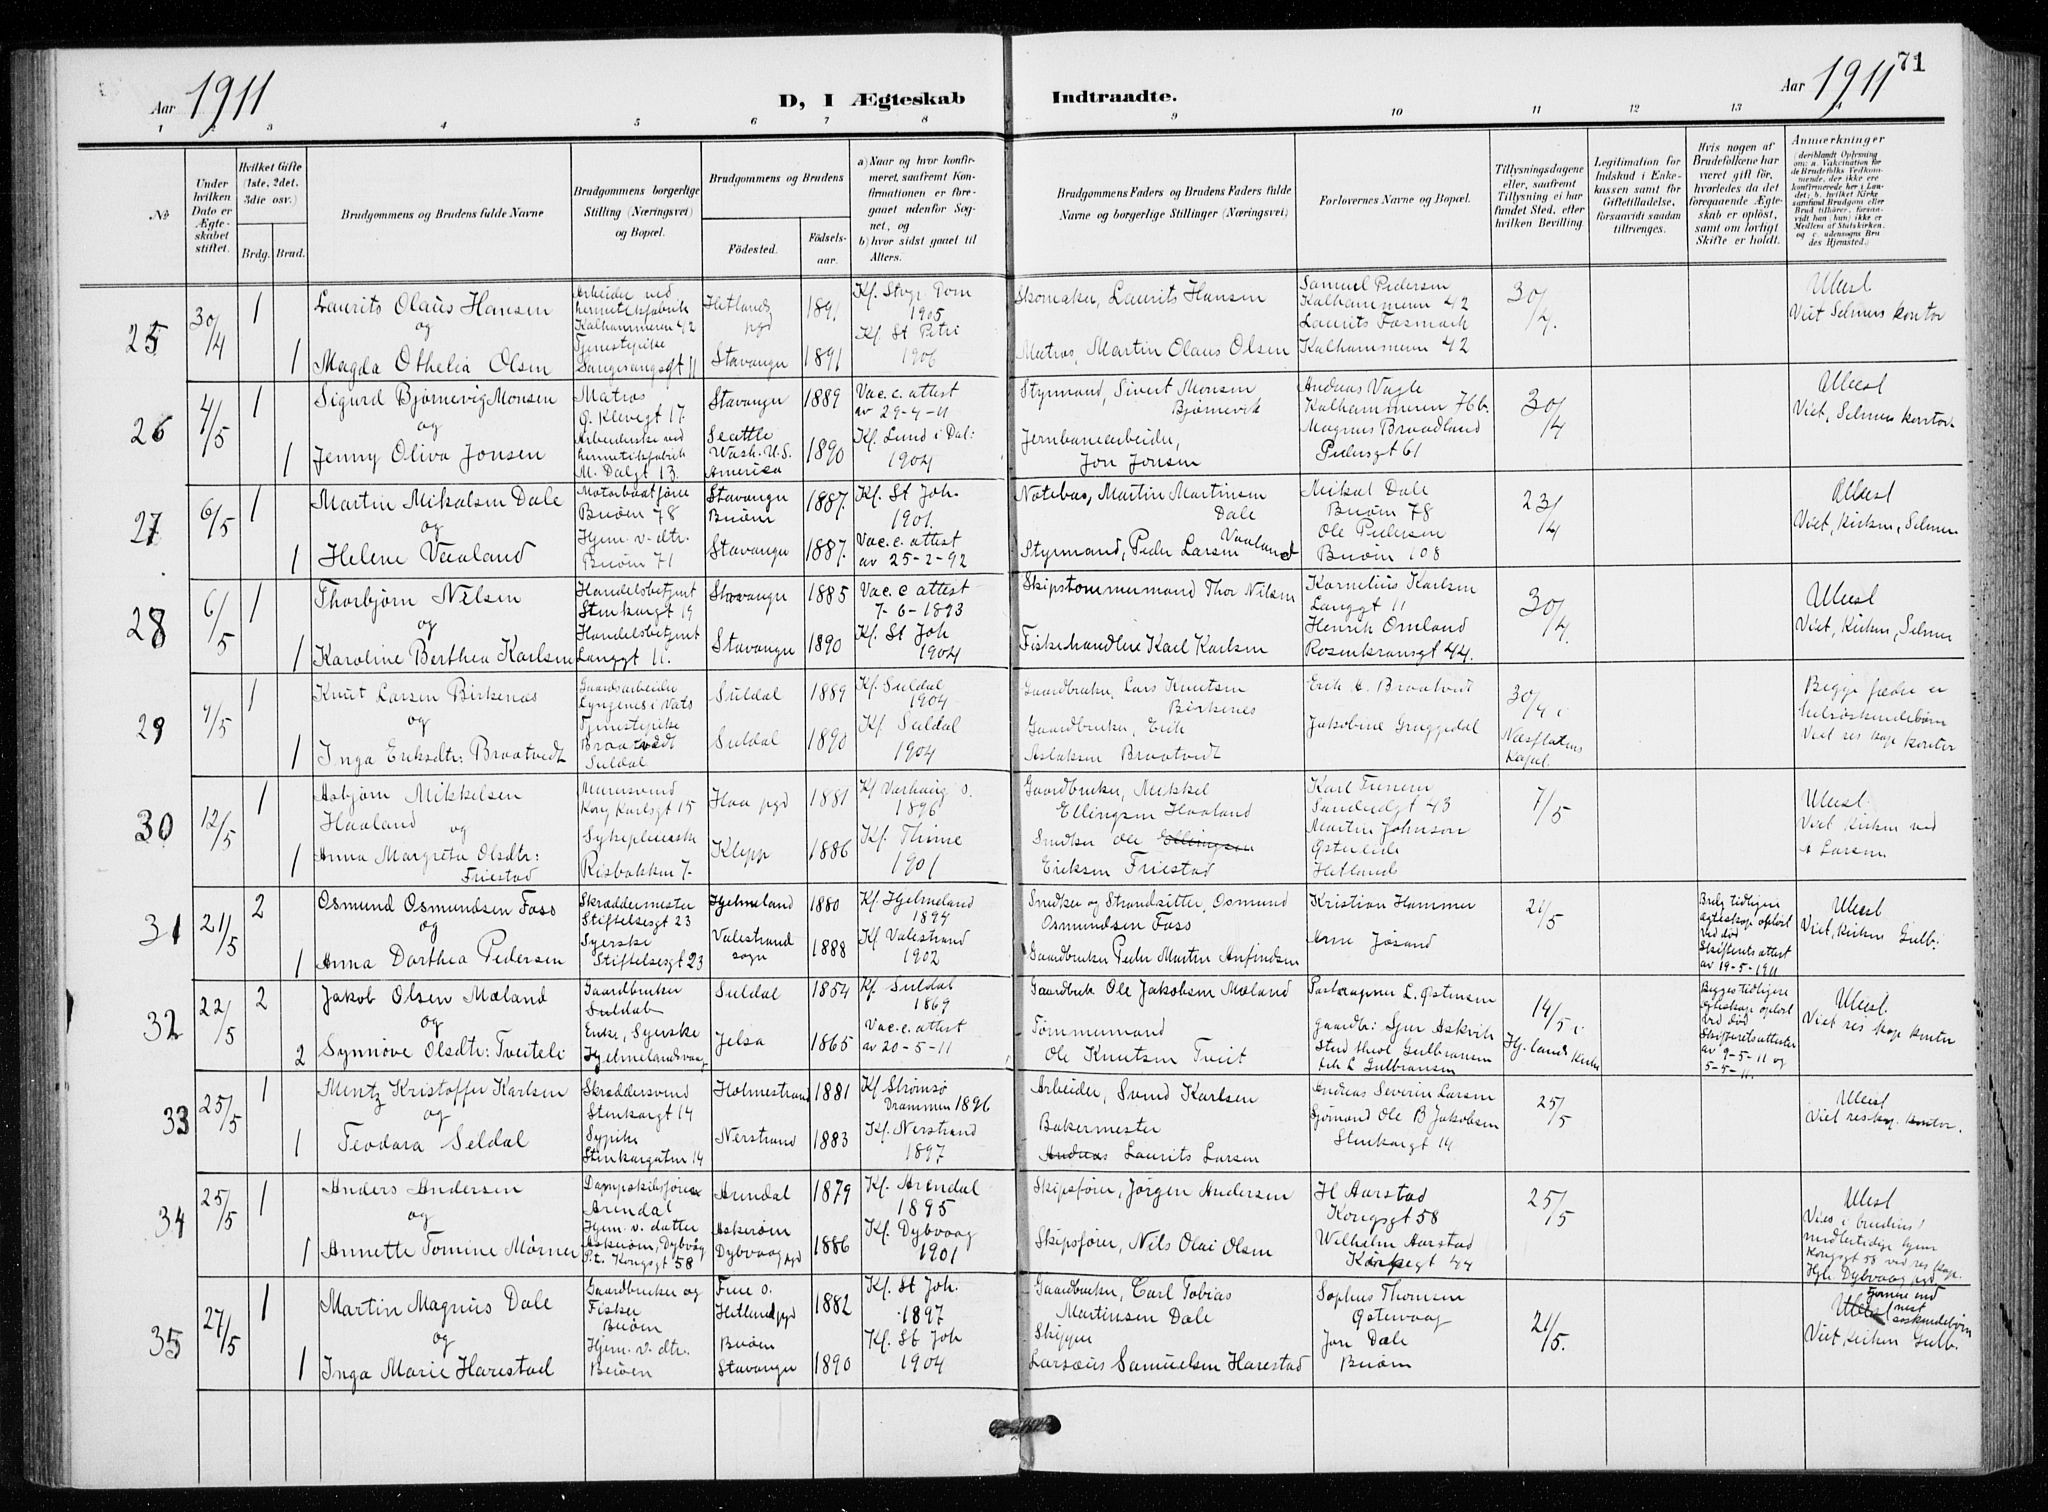 71
Aar 1911
D, I Ægteskab Indtraadte.
Aar 1911
1 2 3 4 5 6 7 8 9 10 11 12 13
No
Under hvilken Dato er Ægteskabet stiftet.
Hvilket Gifte (1ste, 2det, 3die osv.)
Brdg. Brud.
Brudgommens og Brudens fulde Navne
Brudgommens borgerlige Stilling (Næringsvei) og Bopæl.
Brudgommens og Brudens
Fødested.
Fødselsaar.
a) Naar og hvor konfirmeret, saafremt Konfirmationen er foregaaet udenfor Sognet, og
b) hvor sidst gaaet til Alters.
Brudgommens Faders og Brudens Faders fulde Navne og borgerlige Stillinger (Næringsvei)
Forlovernes Navne og Bopæl.
Tillysningsdagene eller, saafremt Tillysning ei har fundet Sted, efter hvilken Bevilling.
Legitimation for Indskud i Enkekassen samt for Giftetilladelse, forsaavidt saadan tiltrænges.
Hvis nogen af Brudefolkene har været gift før, hvorledes da det foregaaende Ægteskab er opløst, samt om lovligt Skifte er holdt.
Anmærkninger
25
30/4
1
Laurits Olaus Hansen
og
1
Magda Othelia Olsen
Arbeider ved
hermetikfabrik
Kalhammeren 42
Tjenestepike
Hetlands
pgd
Stavanger
1891
1891
Kf. Stvgr. Dom
1905
Kf. St Petri
1906
Skomaker, Laurits Hansen
Matros, Martin Olaus Olsen
Samuel Pedersen
Kalhammeren 42
Laurits Fosmark
Kalhammeren 42
30/4.
Ulæst
Viet Selmers kontor
26
4/5
1
Sigurd Bjørnevig Monsen
og
1
Jenny Oliva Jonsen
Matros
Ø. Klevegt 17.
Arbeiderske ved
hermetikfabrik
M. Dalgt 13.
Stavanger
Seattle
Wash. U.S.
Amerisa
1889
1890
Vac. c. attest
av 29-4-11
Kf. Lund i Dal:
1904
Styrmand, Sivert Monsen
Bjørnevik
Jernbanearbeider,
Jon Jonsen
Andreas Vagle
Kalhammeren 76b.
Magnus Braadland
Pedersgt 61
30/4
Ulæst
Viet, Selmers kontor
27
6/5
1
Martin Mikalsen Dale
og
1
Helene Vaaland
Motorbaatfører
Buøen 78
Hjem. v. dtr.
Buøen 71
Stavanger
Buøen
Stavanger
1887.
1887.
Kf. St Joh.
1901.
Vac. c. attest
av 25-2-92
Notebas, Martin Martinsen
Dale
Styrmand, Peder Larsen Vaaland
Mikal Dale
Buøen 78
Ole Pedersen
Buøen 108
23/4
Ulæst
Viet, kirken, Selmer
28
6/5
1
Thorbjørn Nilsen
og
1
Karoline Berthea Karlsen
Handelsbetjent
Stenkargt 19
Handelsbetjent
Langgt 11.
Stavanger
Stavanger
1885
1890
Vac. c attest
7-6-1893
Kf. St Joh
1904
Skipstømmermand Thor Nilsen
Fiskehandler Karl Karlsen
Kornelius Karlsen
Langgt 11
Henrik Omland
Rosenkransgt 44.
30/4.
Ulæst
Viet, Kirken, Selmer
29
7/5
1
Knut Larsen Birkenes
og
1
Inga Eriksdtr: Braatvedt
Gaardsarbeider
Lyngenes i Vats
Tjenestepike
Braatvedt
Suldal
Suldal
Suldal
1889
1890
Kf. Suldal
1904
Kf. Suldal
1904
Gaardbruker, Lars Knutsen
Birkenes
Gaardbruker, Erik
Aslaksen Braatvedt
Erik A. Braatvedt
Jakobine Gruggedal
30/4 i
Næsflatens
Kapel.
Begge fædre er
helsøskendebørn
Viet res kap kontor
30
12/5
1
Asbjørn Mikkelsen
Haaland og
1
Anna Margreta Olsdtr:
Friestad
Murersvend
Kong Karlsgt 15
Sykepleierske
Risbakken 7.
Haa pgd
Klepp
1881
1886
Kf Varhaug s.
1896
Kf. Thime
1901
Gaardbruker, Mikkel
Ellingsen Haaland
Snedker Ole Ellingsen
Eriksen Friestad
Karl Tunem
Sandeidgt 43
Martin Johnson
Østerlide
Hetland
7/5
Ulæst
Viet kirken ved
A Larsen
31
21/5
2
Osmund Osmundsen Foss
og
1
Anna Dorthea Pedersen
Skræddermester
Stiftelsesgt 23
Syerske
Stiftelsesgt 23
Hjelmeland
Valestrand
sogn
1880
1888
Kf. Hjelmeland
1894
Kf Valestrand
1902
Snedker og Strandsitter, Osmund
Osmundsen Foss
Gaardbruker Peder Martin Anfindsen
Kristian Hammer
Arne Jøsand
21/5
Brdg tidligere
egteskap opløst
ved død
Skifterets attest
av 19-5-1911
Ulæst
Viet, Kirken Gulb.
32
22/5
2
Jakob Olsen Mæland
og
2
Synnøve Olsdtr: Tveiteli
Gaardbruker
Suldal
Enke, Syerske
Hjelmelandsvaag
Suldal
Jelsa
1854
1865
Kf. Suldal
1869
Vac. c. attest
av 20-5-11
Gaardbruk Ole Jakobsen Mæland
Tømmermand
Ole Knutsen Tveit
L. Østensen
Gaardb: Sjur Askvik
Stud theol Gulbransen
14/5 i
Hj.lands Kirke
Begges tidligere
egteskap opløst
ved død
Skifteretsattester
av 9-5-11 og
5-5-11.
Ulæst.
Viet res kap kontor
33
25/5
1
Mentz Kristoffer Karlsen
og
1
Teodora Seldal
Skræddersvend
Stenkargt 14
Sypike
Stenkargaten 14
Holmestrand
Nerstrand
1881
1883
Kf. Strømsø
Drammen 1896
Kf. Nerstrand
1897
Arbeider, Svend Karlsen
Bakermester
Andreas Laurits Larsen
Andreas Severin Larsen
Sjømand Ole B Jakobsen
Stenkargt 14
25/5
Ulæst
Viet reskap. kontor.
34
25/5
1
Anders Andersen
og
1
Annette Tomine Mørner
Dampskibsfører
Arendal
Hjem. v. datter
Askerøen, Dybvåg
P.t. Kongsgt 58
Arendal
Askerøen
Dybvaag pgd
1879
1886
Kf. Arendal
1895
Kf. Dybvaag
1901
Skipsfører, Jørgen Andersen
Skipsfører, Nils Olai Olsen
H Aarstad
Kongsgt 58
Wilhelm Aarstad
25/5
Ulæst
Viet i brudens
midlertidige hjem
Kongsgt 58 ved res kap.
Hjh. Dybvaag pgd
35
27/5
1
Martin Magnus Dale
og
1
Inga Marie Harestad
Gaardbruker og
Fisker
Buøen
Hjem. v. dtr.
Buøen
Frue s.
Hetland pgd
Buøen
Stavanger
1882
1890
Kf. St Joh.
1897
Kf. St Joh
1904
Gaardbruker, Carl Tobias
Martinsen Dale
Skipper
Larsæus Samuelsen Harestad
Sophus Thomsen
Østervaag
Jon Dale
Buøen
21/5.
Ulæst
søskendebørn
Viet, Kirken Gulb.